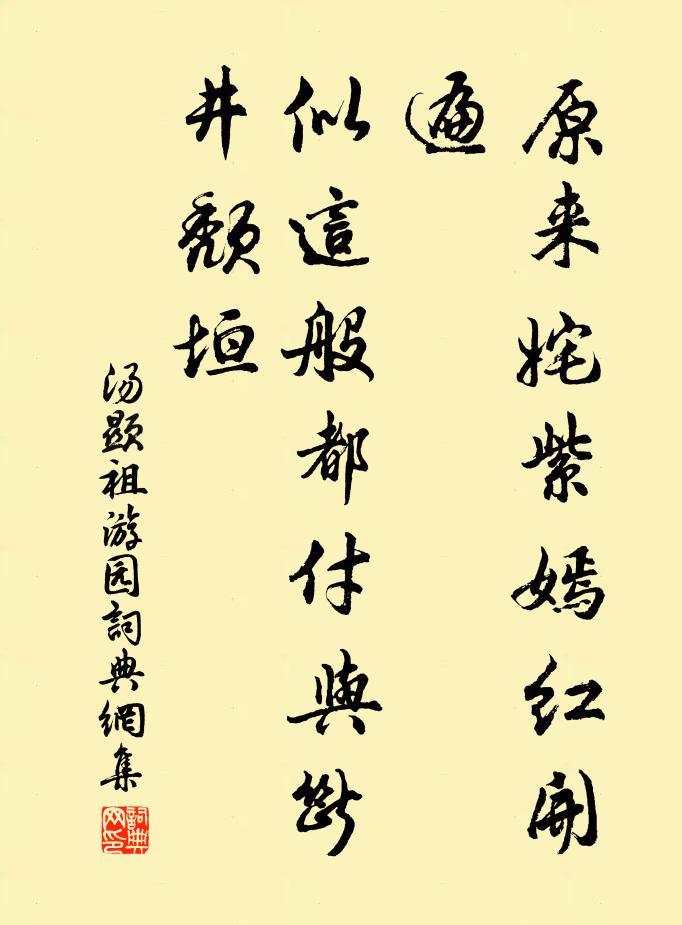 原来姹紫嫣红開
遍
似這般都付與斷
井頹垣
汤顕祖游园詞典網集
詞典
网印